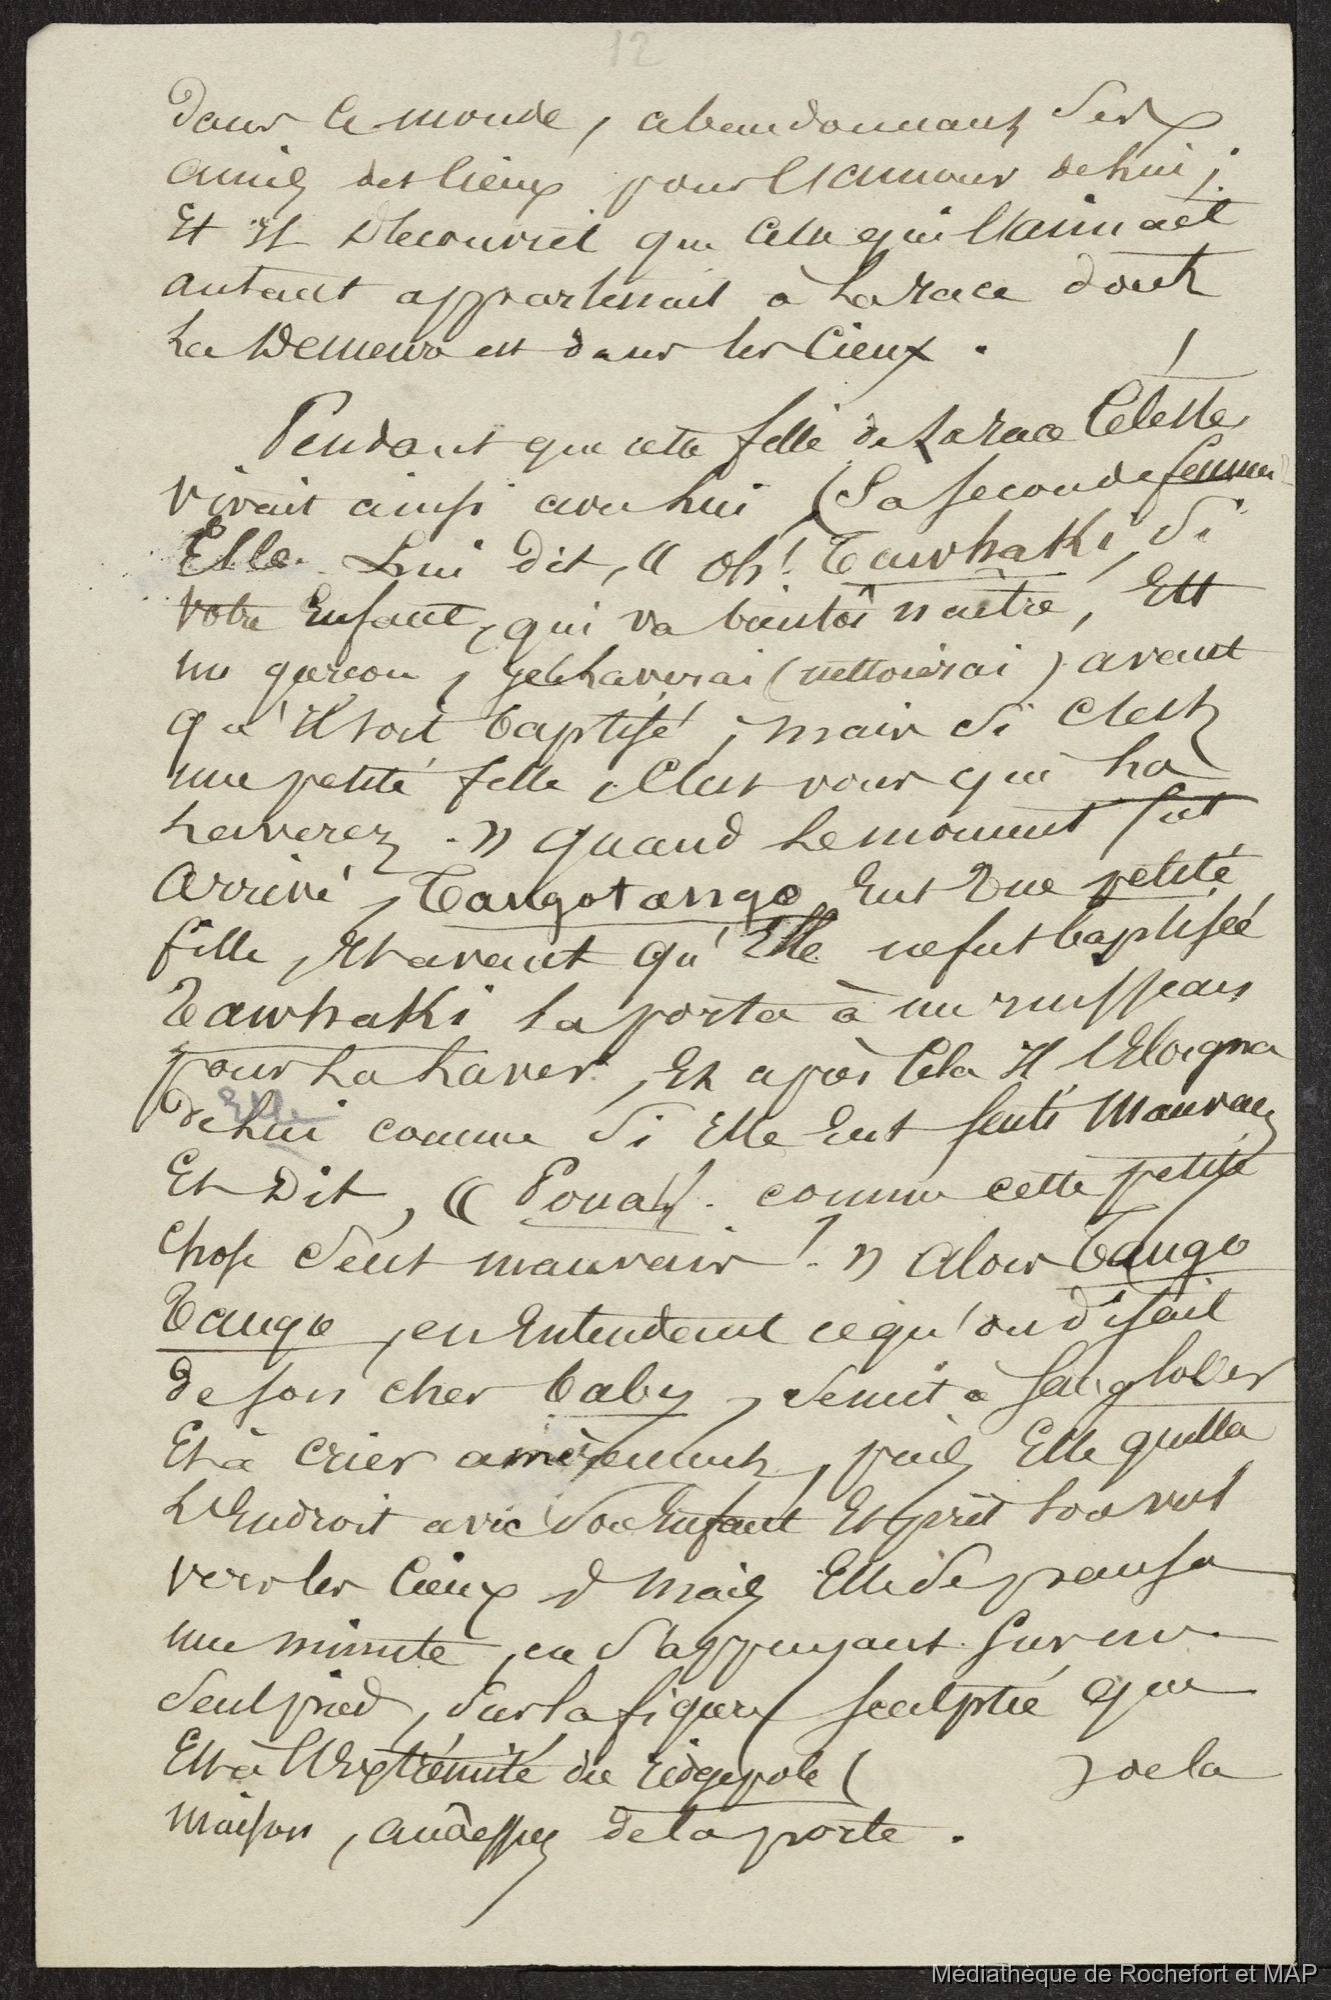 12
dans le monde, abandonnant ses
amis des cieux pour l'amour de lui ;
Et Il Découvrit que celle qui l'aimait
autant appartenait à la race dont
la Demeure est dans les Cieux .
Pendant que cette fille de la race Céleste
vivait ainsi avec lui (Sa seconde femme
Elle Lui dit, « Oh ! Tawhaki, Si
votre Enfant, qui va bientôt naître, Est
un garçon, je le laverai (nettoierai) avant
qu'Il soit baptisé ; mais si c'est
une petite fille, C'est vous qui la
laverez . » quand le moment fut
Arrivé, Tangotango Eut Une petite
fille, Et avant qu'Elle ne fut baptisée
Tawhaki la porta à un ruisseau
pour la laver, Et après Cela Il l'Eloigna
Elle
de lui comme si Elle Eut senti Mauvais
Et Dit, « Pouah ! comme cette petite
chose sent mauvais ! » Alors Tango
Tango, en Entendant ce qu'on disait
de son cher baby, se mit à sangloter
Et à crier amèrement, puis Elle quitta
L'Endroit avec Son Enfant Et prit son vol
vers les Cieux ; Mais Elle se pausa
une minute, en s'appuyant sur un
seul pied, Sur la figure sculptée que
Est à l'Extrémité du ridgepole ( ) de la
maison, audessus de la porte .
Médiathèque de Rochefort et MAP